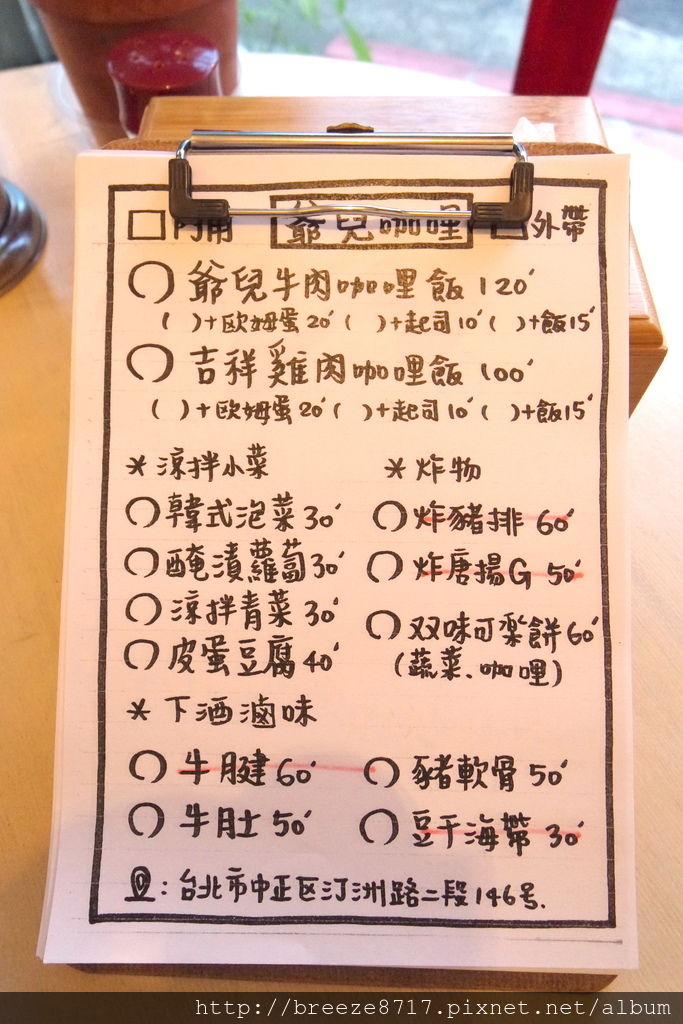 內用 爺兒咖哩 外帶
爺兒牛肉咖哩飯 120'
( )+歐姆蛋20' ( )+起司10' ( )+飯15'
吉祥雞肉咖哩飯 100'
( )+歐姆蛋20' ( )+起司10' ( )+飯15'
* 涼拌小菜
韓式泡菜 30'
醃漬蘿蔔 30'
涼拌青菜 30'
皮蛋豆腐 40'
* 炸物
炸豬排 60'
炸唐揚G 50'
双味可樂餅 60'
(蔬菜.咖哩)
* 下酒滷味
牛腱 60'
牛肚 50'
豬軟骨 50'
豆干海帶 30'
:台北市中正区汀洲路二段146号.
http://breeze8717.pixnet.net/album